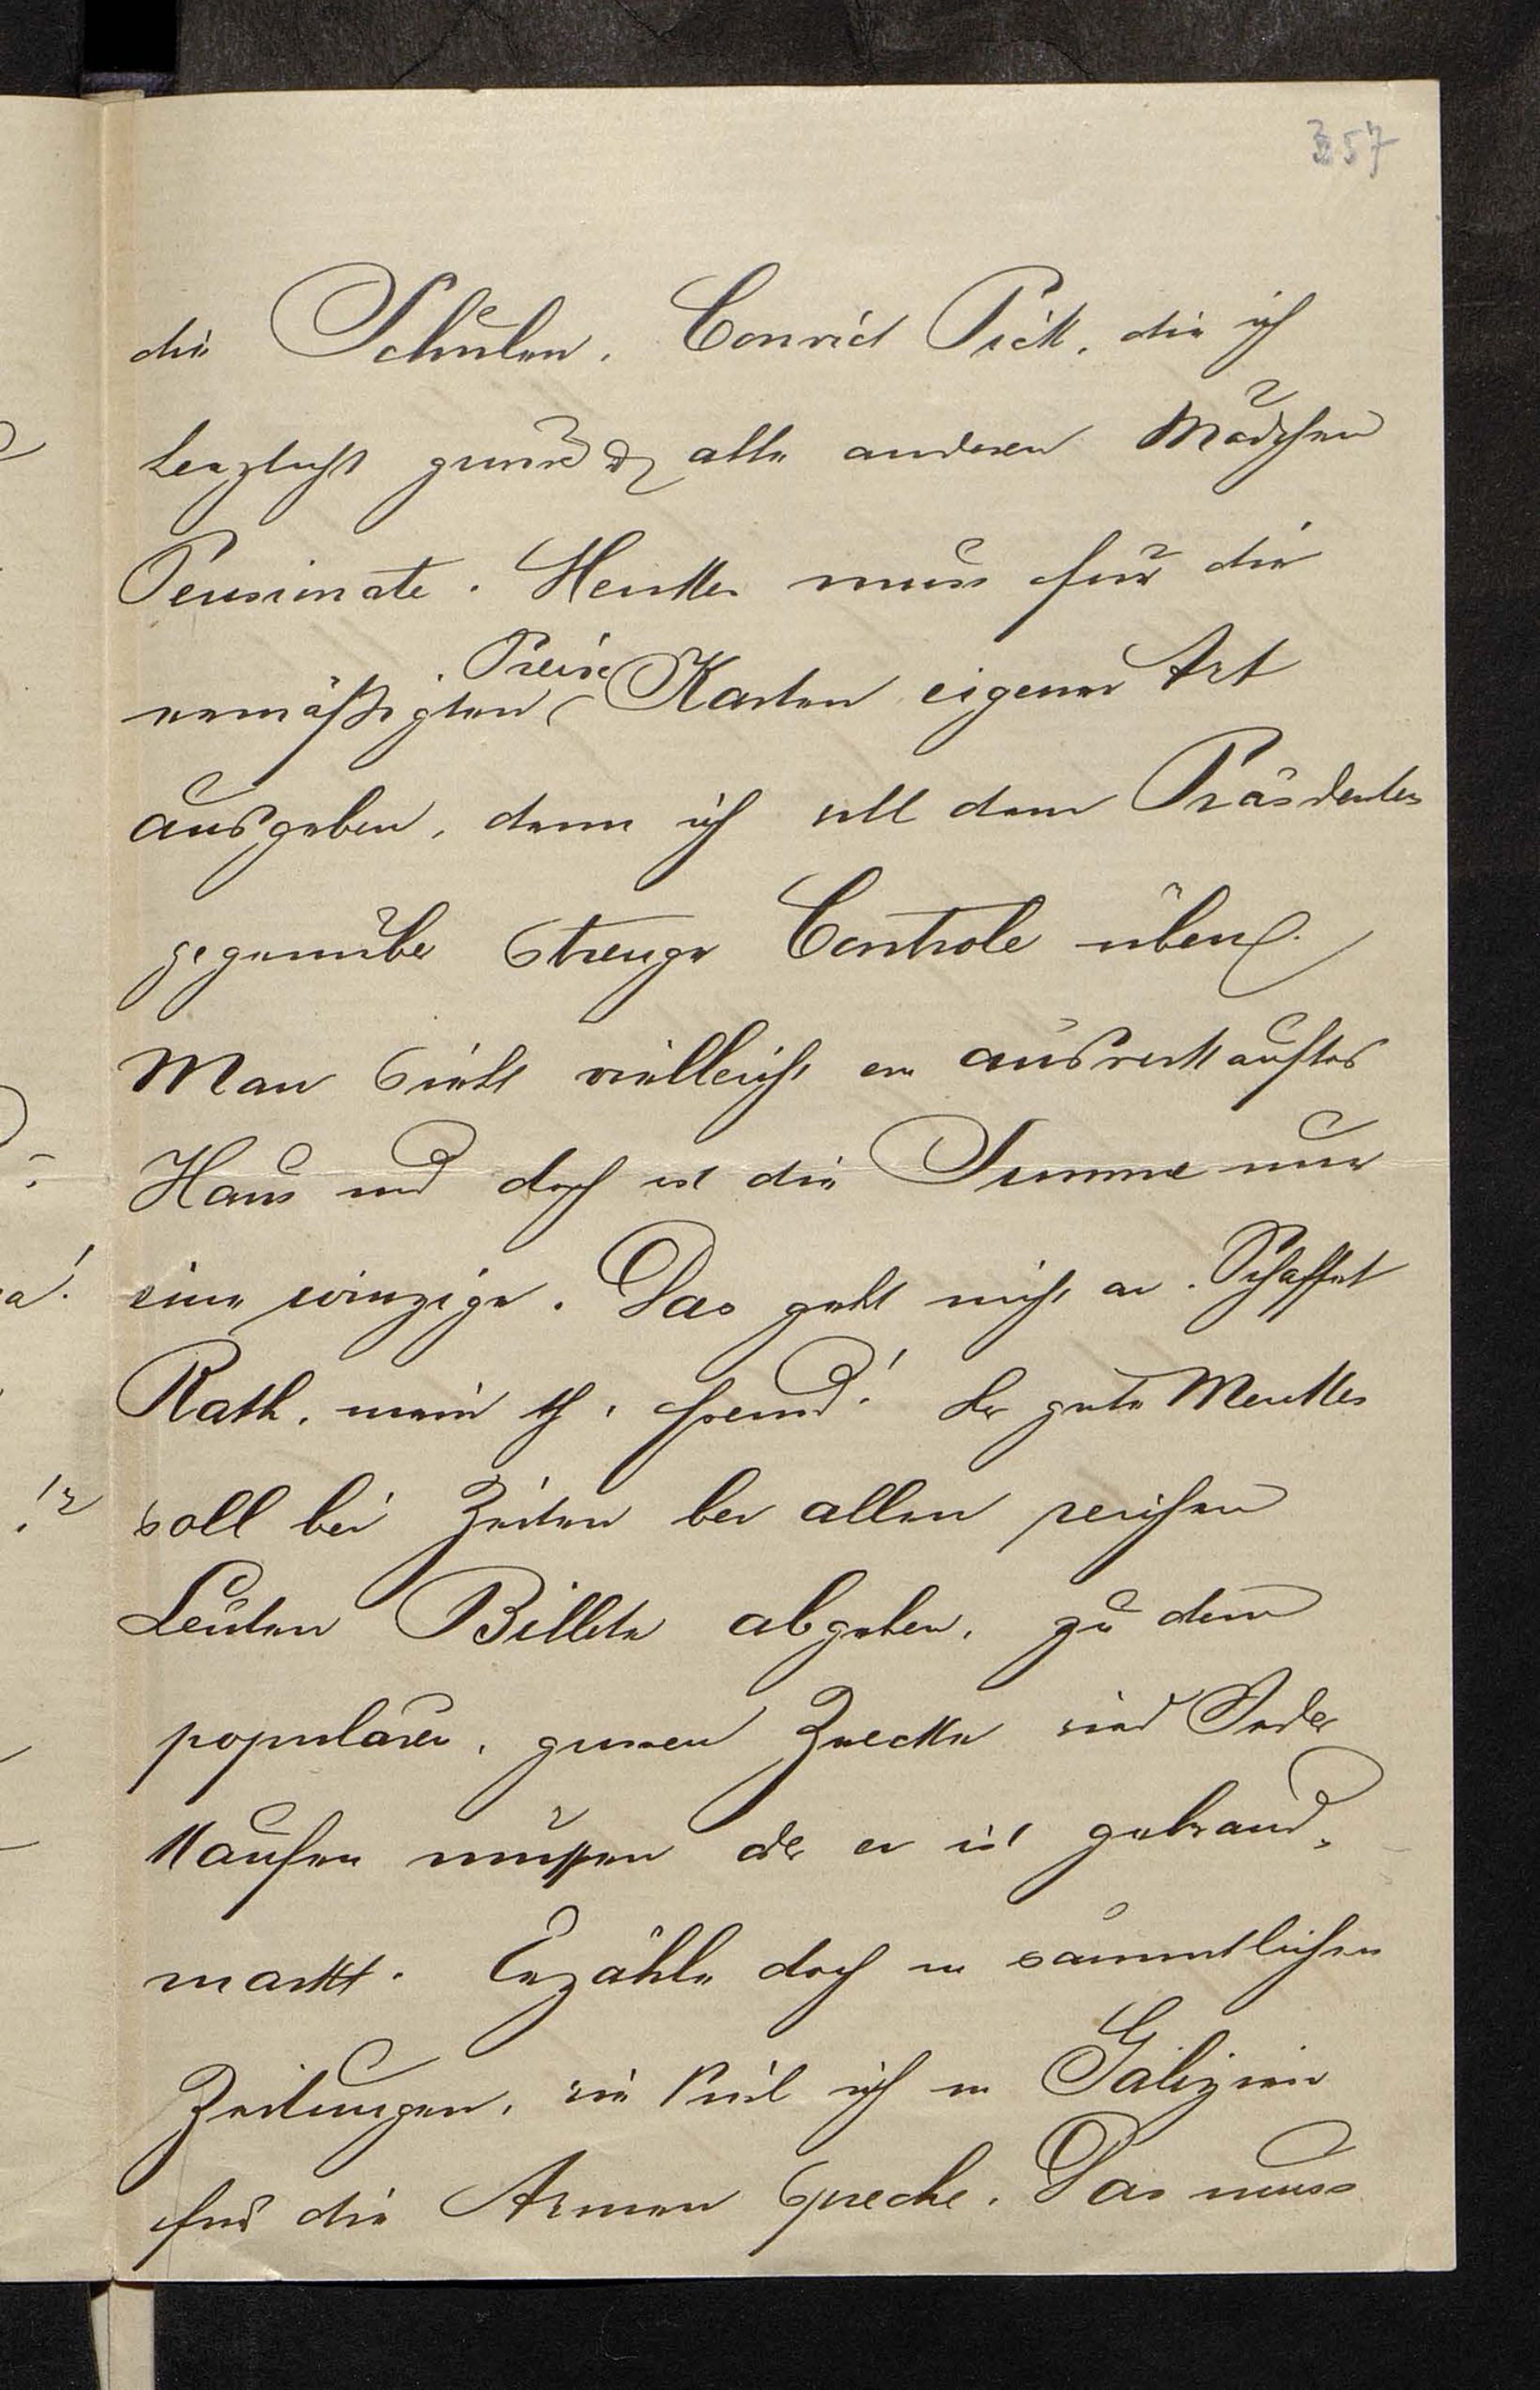 357
die Schulen, Convict Pick, die ich
herzlichst grüße & alle anderen Mädchen
Pensionate. Menkes muss für die
Preise
ermäßigten Karten eigener Art
ausgeben, denn ich soll dem Präsidenten
gegenüber strenge Controle üben.
Man sieht vielleicht ein ausverkauftes
Haus und doch ist die Summe nur
eine winzige. Das geht nicht an. Schaffet
Rath, mein th. Freund! Der gute Menkes
soll bei Zeiten bei allen reichen
Leuten Billete abgeben, zu dem
populären, grossen Zwecke wird Jeder
kaufen müssen oder er ist gebrand-
markt. Erzähle doch in sämmtlichen
Zeitungen, wie viel ich in Galizien
für die Armen spreche. Das muss